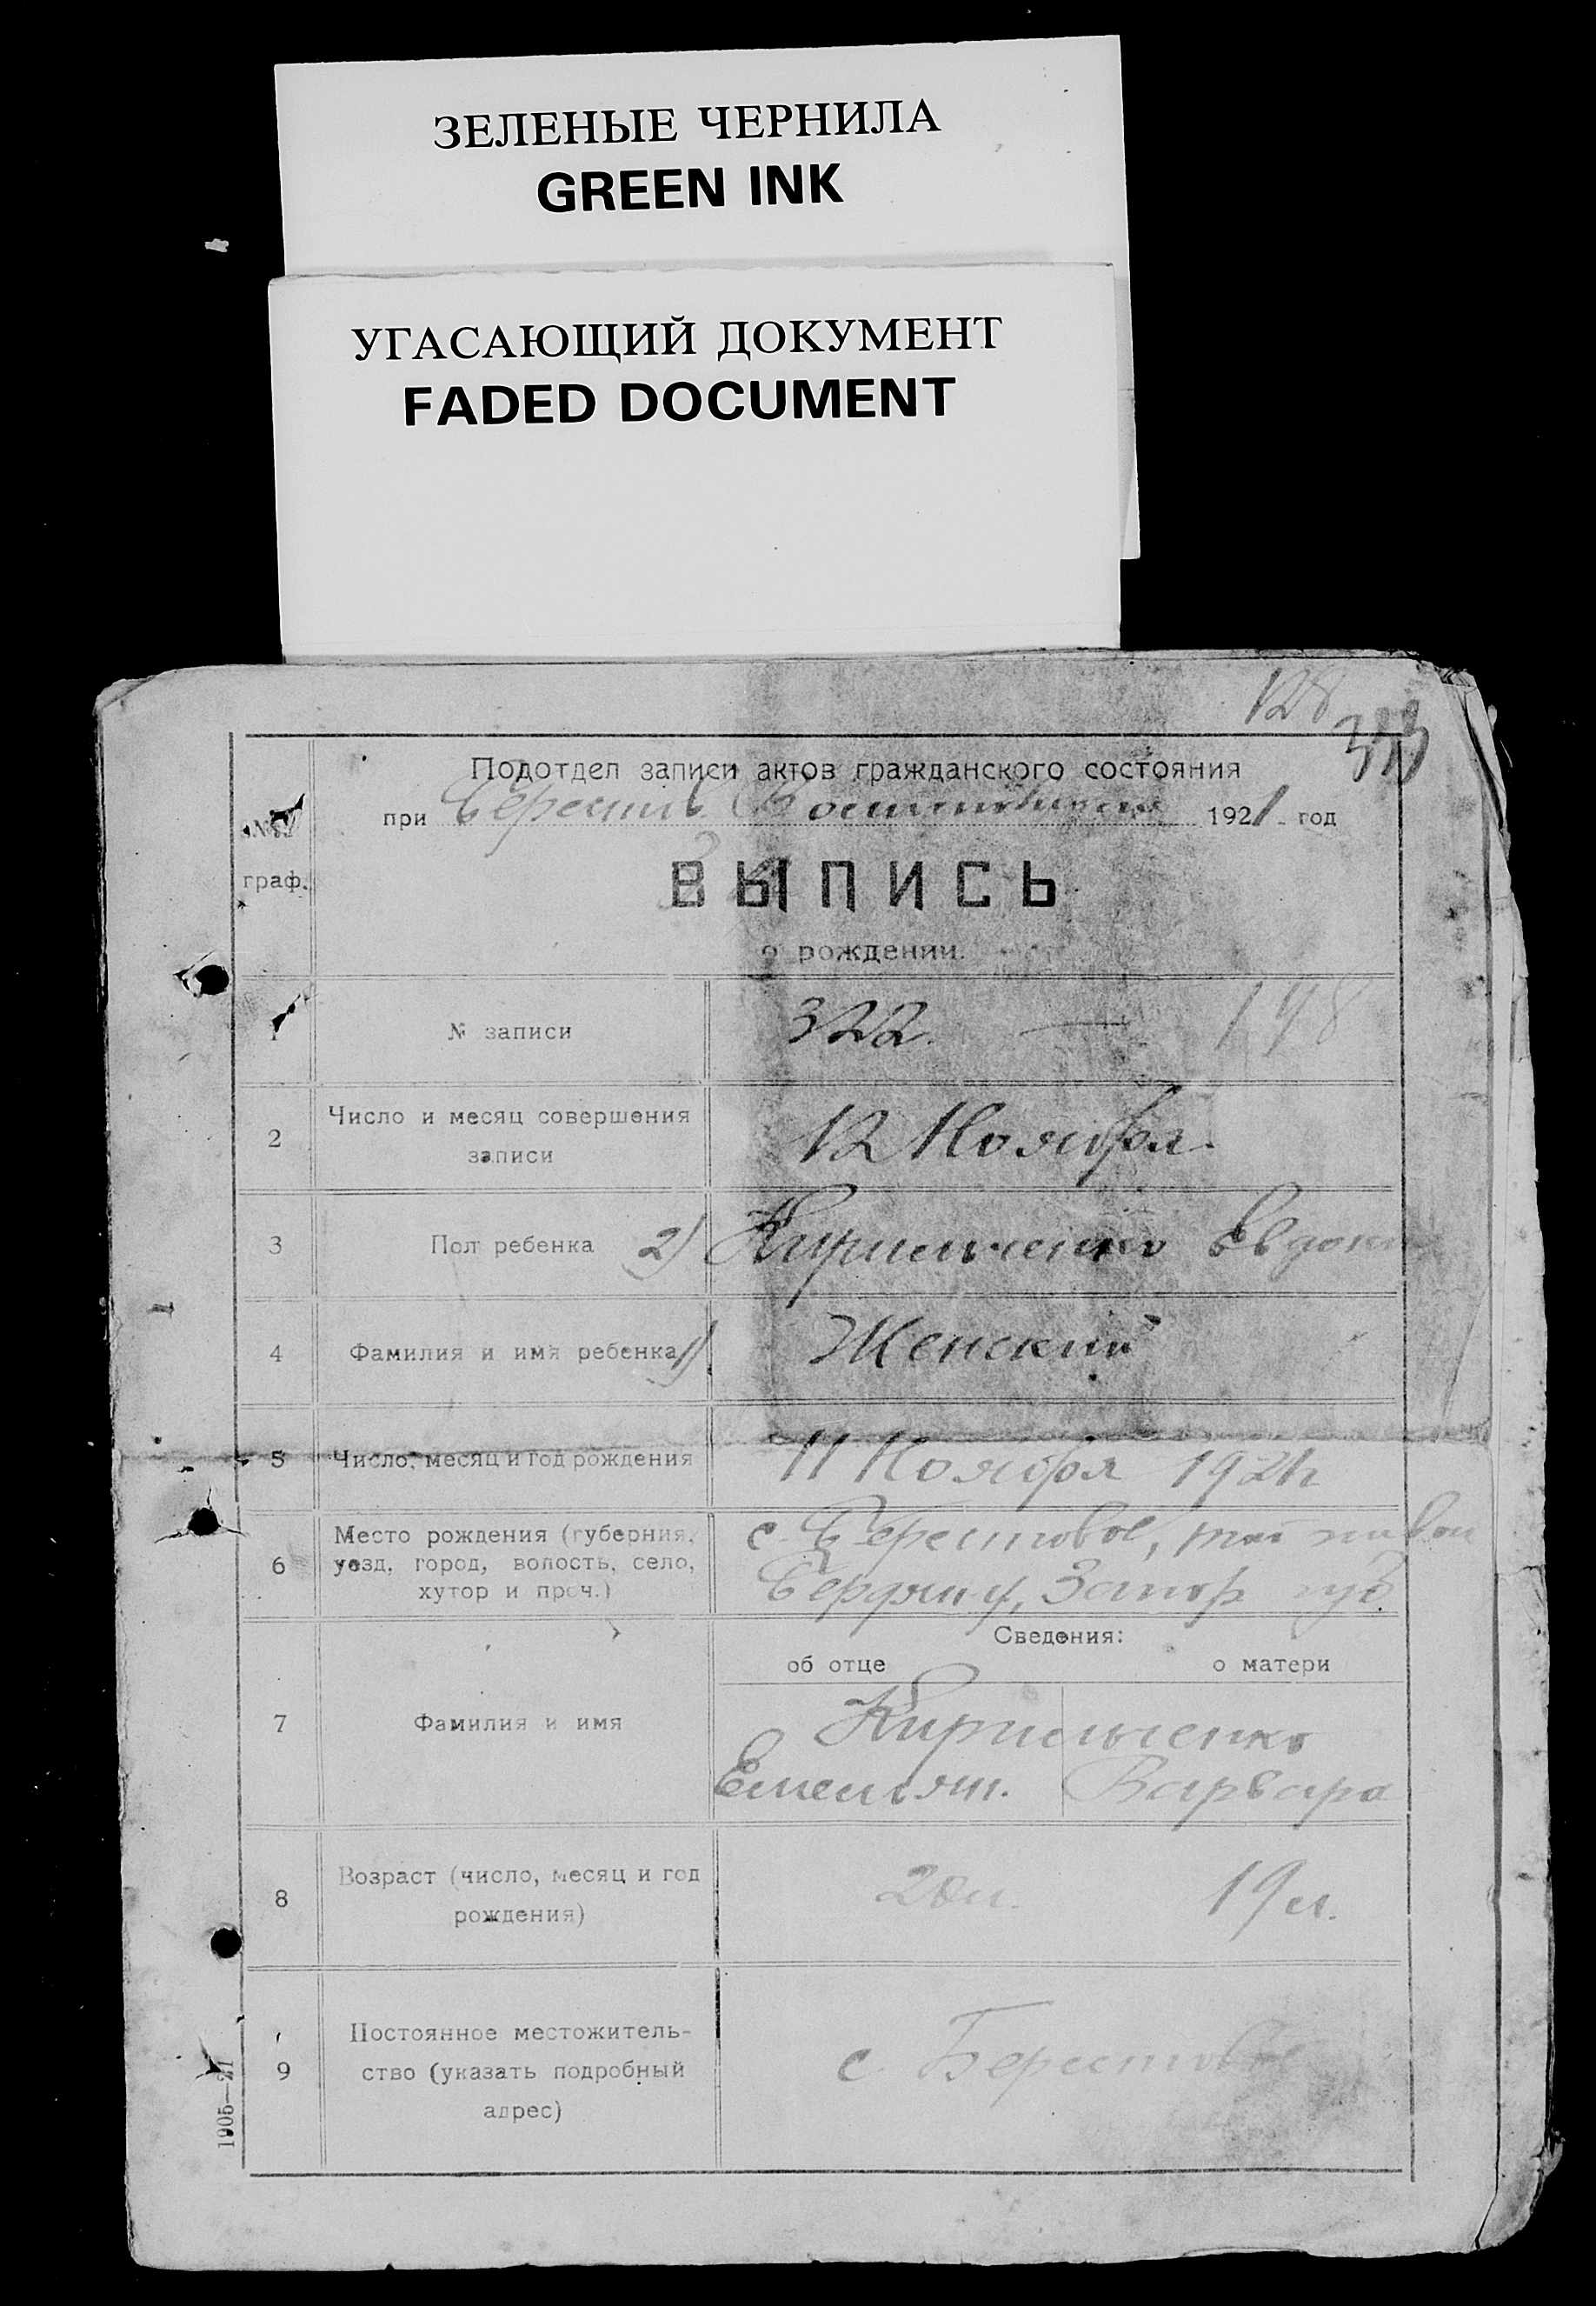 ЗЕЛЕНЫЕ ЧЕРНИЛА
GREEN INK
УГАСАЮЩИЙ ДОКУМЕНТ
FADED DOCUMENT
128
Подотдел записи актов гражданского состояния
при 1921 год
граф.
ВЫПИСЬ
о рождении.
1 № записи 322. 198
2 Число и месяц совершения
записи 12 Ноября
3 Пол ребенка 2) Кирильченко Евдок
4 Фамилия и имя ребенка 1) Женский
5 Число, месяц и год рождения 11 Ноября 1921г
6 Место рождения (губерния,
уезд, город, волость, село,
хутор и проч.)
с. Берестовое,
Бердян у, Запор губ.
Сведения:
об отце о матери
7 Фамилия и имя Кирильченко
Емельян. Варвара
8 Возраст (число, месяц и год
рождения) 20 л. 19 л.
9 Постоянное местожитель-
ство (указать подробный
адрес)
с. Берестовое
1905—21